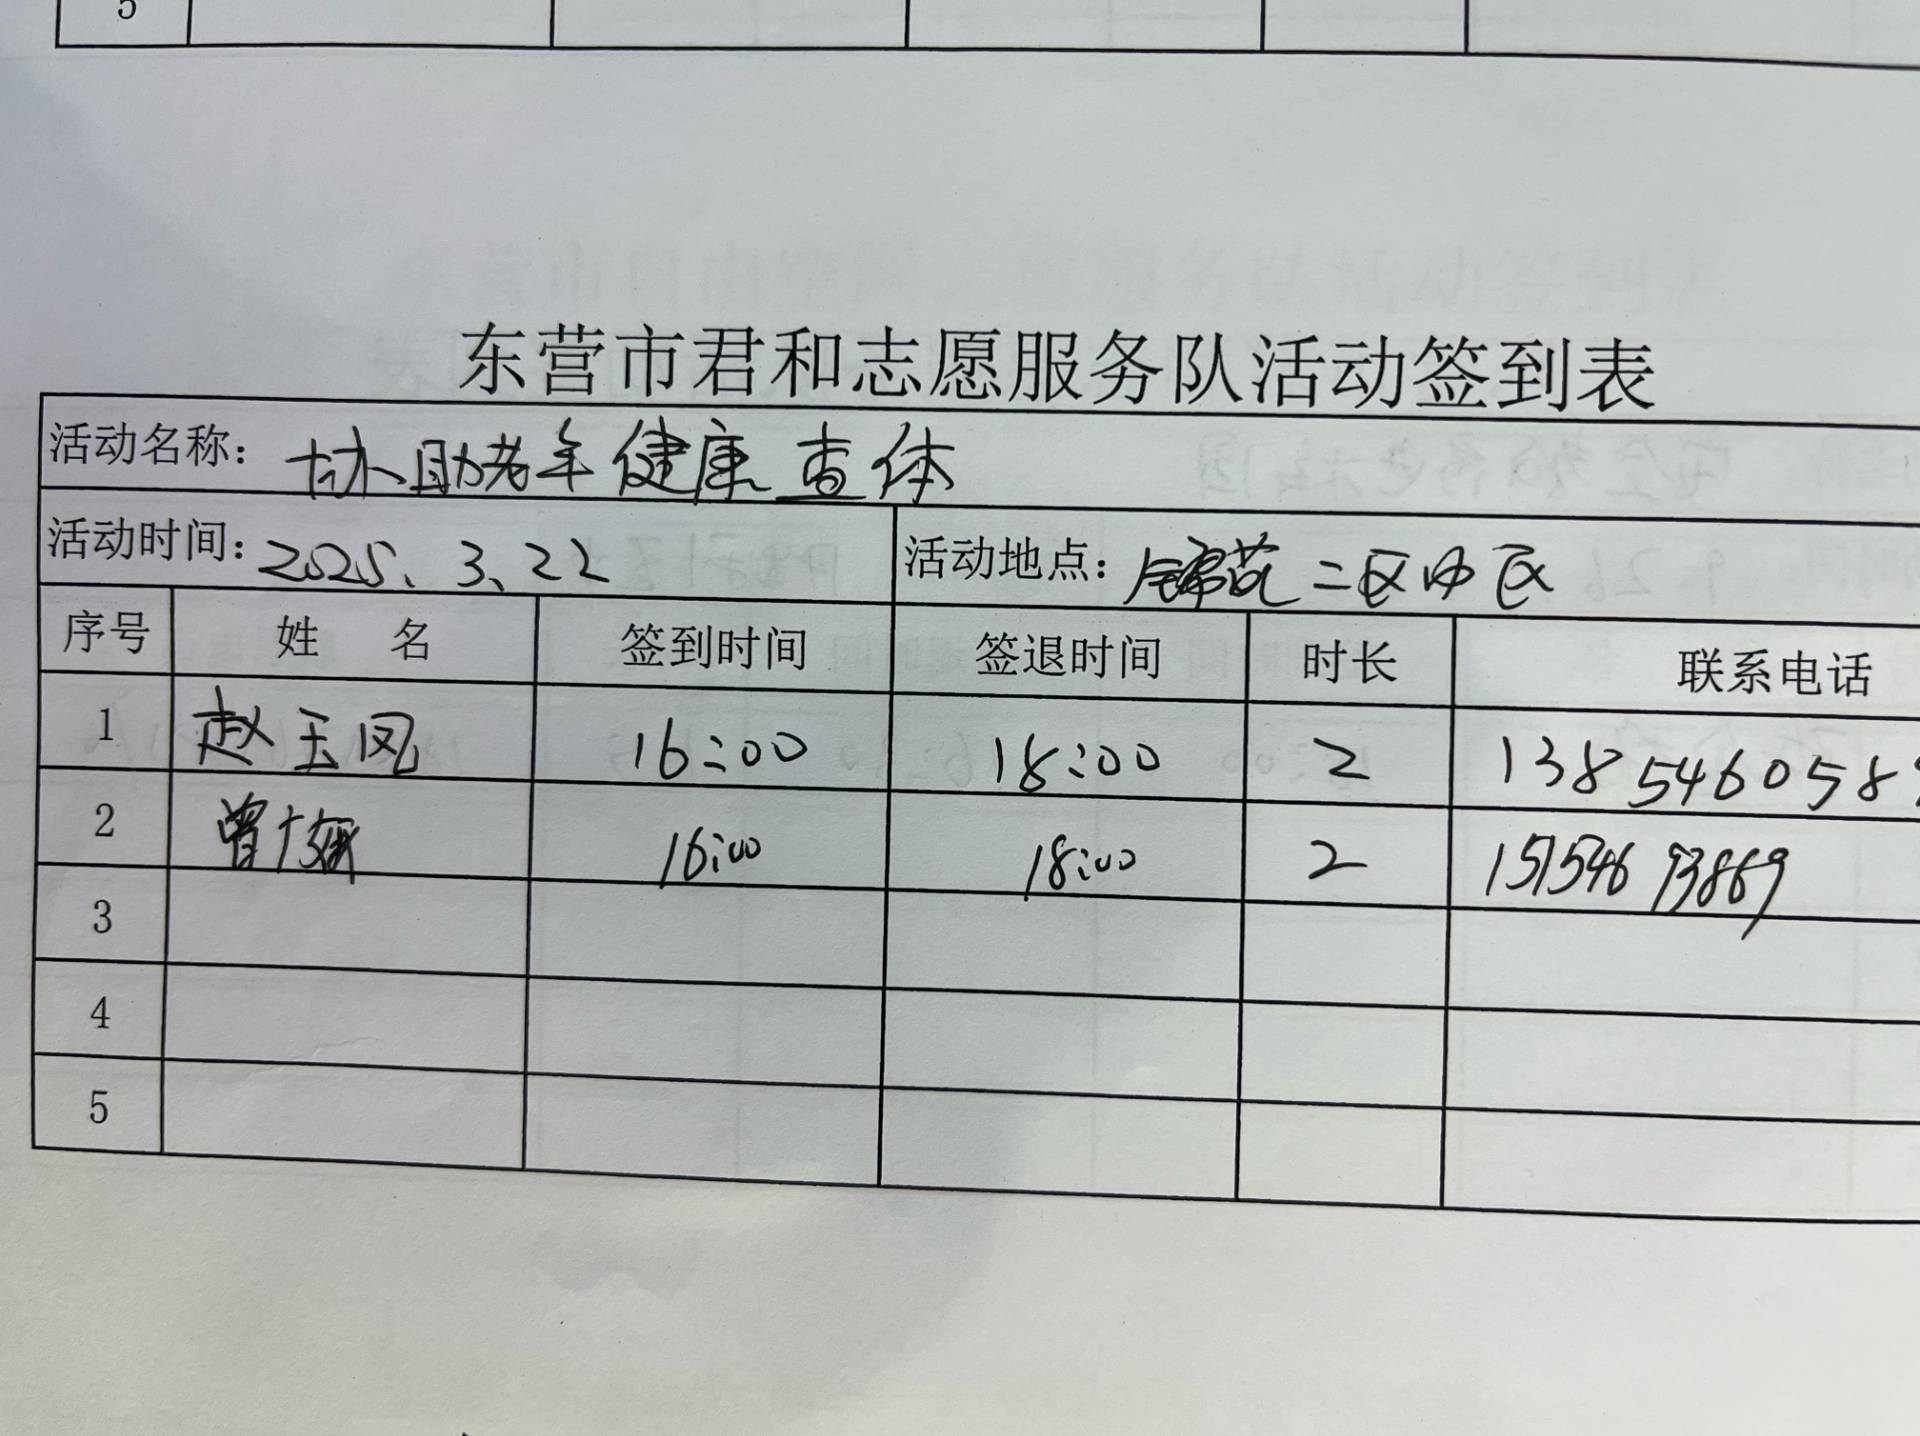 5
东营市君和志愿服务队活动签到表
活动名称: 协助老年健康查体
活动时间: 2025、3、22 活动地点: 锦苑二区中区
序号 姓 名 签到时间 签退时间 时长 联系电话
1 赵玉凤 16:00 18:00 2 138 5460589
2 曾 16:00 18:00 2 151546 93869
3
4
5